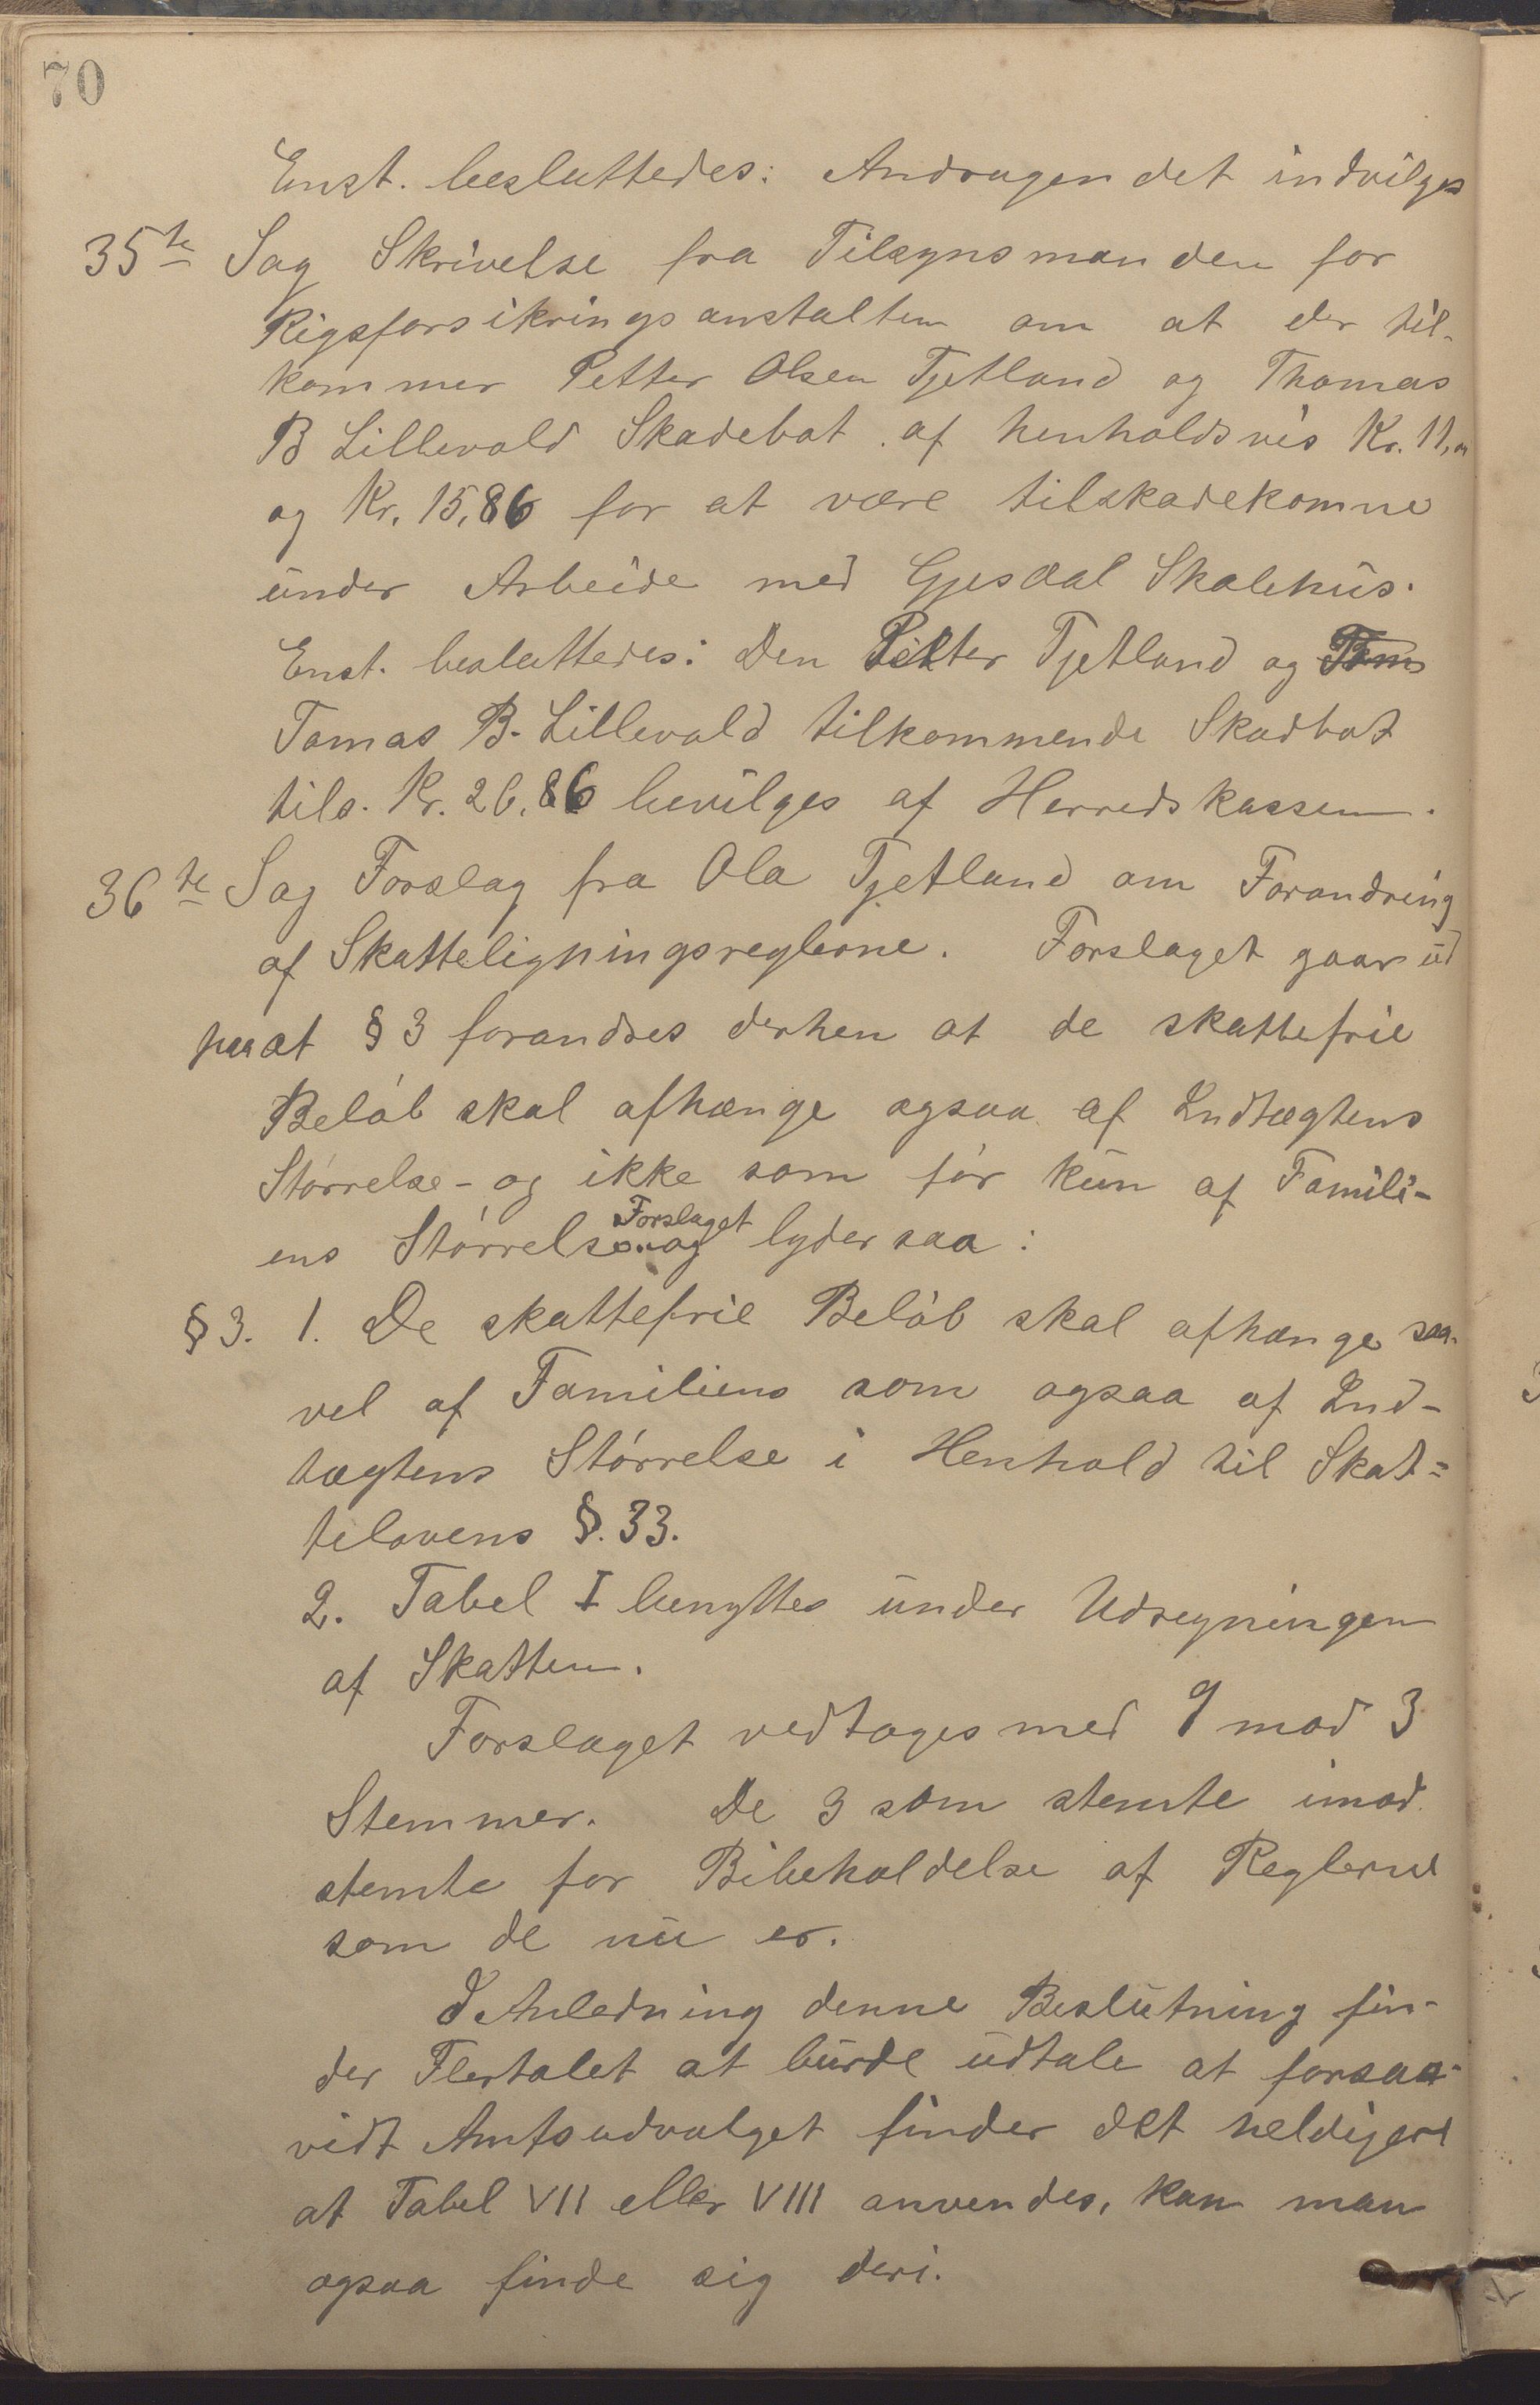 70
Enst. besluttedes: Andragendet indvilges
35te Sag Skrivelse fra Tilsynsmanden for
Rigsforsikringsanstalten om at der til-
kommer Petter Olsen Tjetland og Thomas
B Lillevold Skadebot af henholdsvis Kr. 11,
og Kr. 15,86 for at være tilskadekomne
under Arbeide med Gjesdal Skolehus.
Enst. besluttedes: Den Petter Tjetland og
Tomas B. Lillevold tilkommende Skadbot
tils. Kr. 26,86 bevilges af Herredskassen.
36te Sag Forslag fra Ola Tjetland om Forandring
af Skatteligningsreglerne. Forslaget gaar ud
paa at § 3 forandres derhen at de skattefrie
Beløb skal afhænge ogsaa af Indtægtens
Størrelse - og ikke som før kun af Famili-
ens Størrelse og Forslaget lyder saa:
§ 3. 1. De skattefrie Beløb skal afhænge saa-
vel af Familiens som ogsaa af Ind-
tægtens Størrelse i Henhold til Skat=
telovens §. 33.
2. Tabel I benyttes under Udregningen
af Skatten.
Forslaget vedtoges med 9 mod 3
Stemmer. De 3 som stemte imod
stemte for Bibeholdelse af Reglerne
som de nu er.
I Anledning denne Beslutning fin-
der Flertalet at burde udtale at forsaa-
vidt Amtsudvalget finder det heldigere
at Tabel VII eller VIII anvendes, kan man
ogsaa finde sig deri.